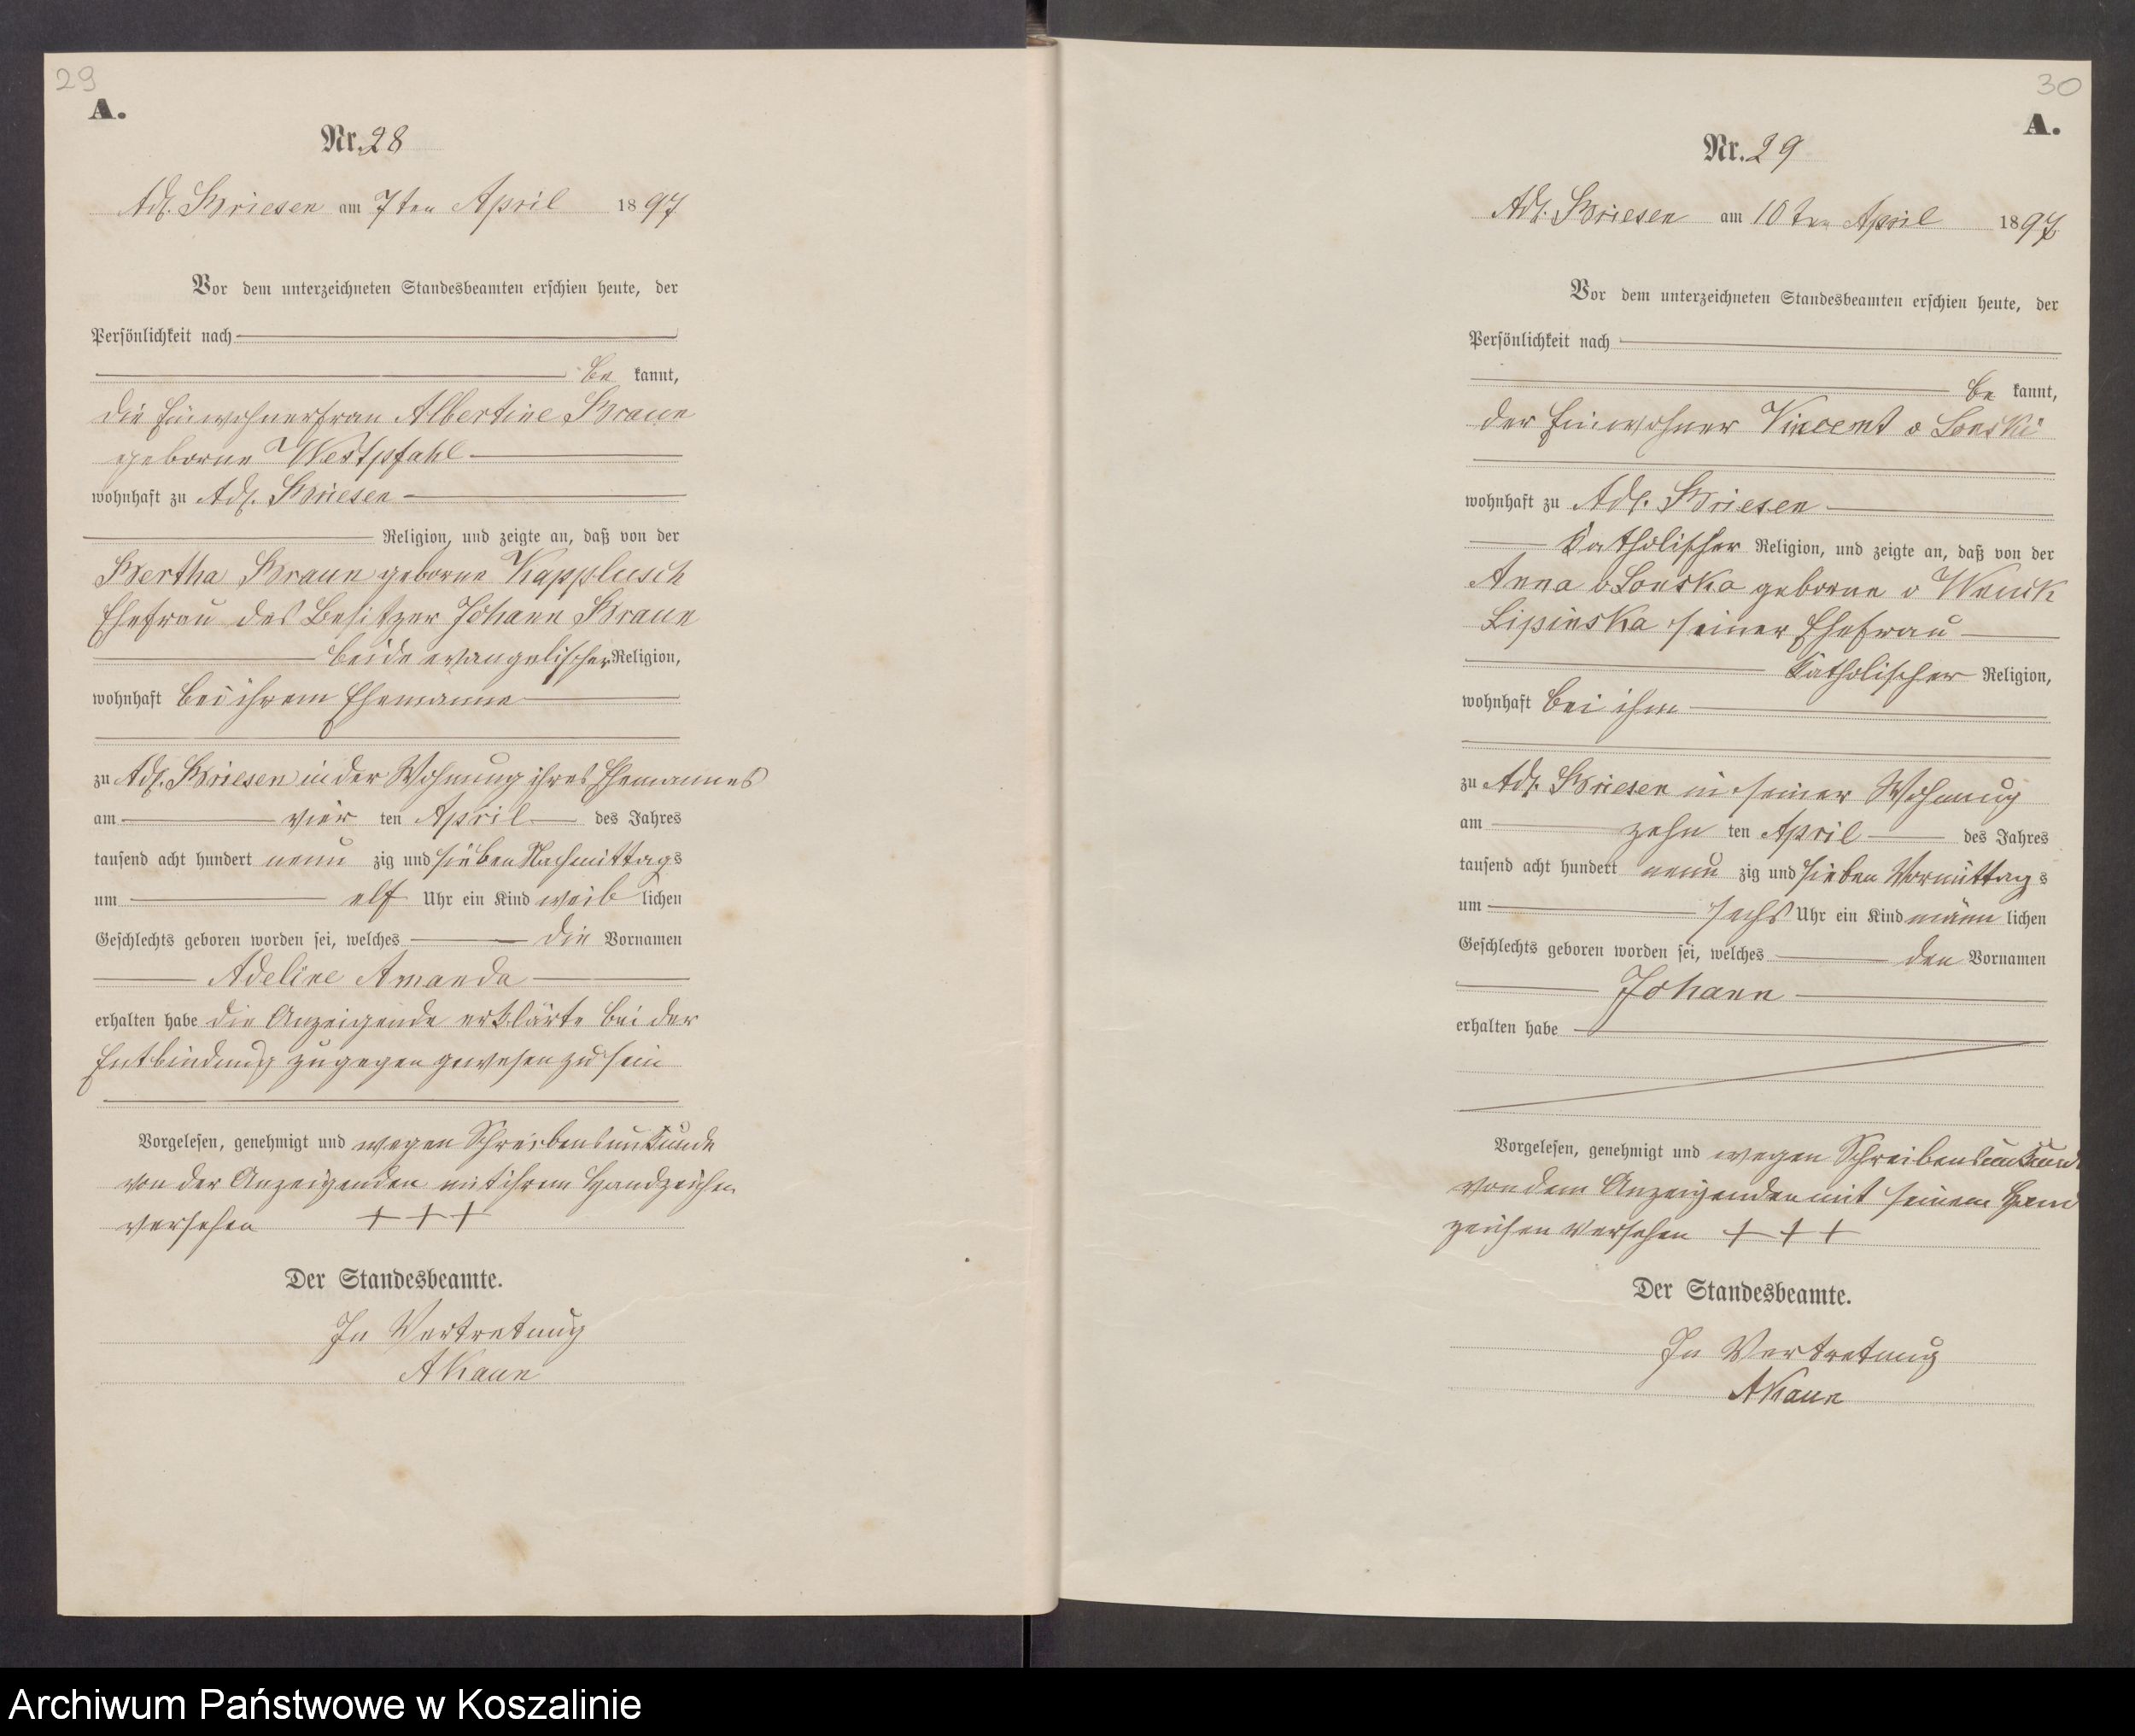 29
A.
Nr. 28
Adl. Briesen am 7ten April 1897
Vor dem unterzeichneten Standesbeamten erschien heute, der
Persönlichkeit nach
be kannt,
die Einwohnerfrau Albertine Braun
geborne Westpfahl
wohnhaft zu Adl. Briesen
Religion, und zeigte an, daß von der
Bertha Braun geborne Kapplusch
Ehefrau des Besitzer Johann Braun
beide evangelischer Religion,
wohnhaft bei ihrem Ehemanne
zu Adl. Briesen in der Wohnung ihres Ehemannes
am vier ten April des Jahres
tausend acht hundert neun zig und sieben Nachmittags
um elf Uhr ein Kind weib lichen
Geschlechts geboren worden sei, welches die Vornamen
Adeline Amanda
erhalten habe die Anzeigende erklärte bei der
Entbindung zugegen gewesen zu sein
Vorgelesen, genehmigt und wegen Schreibensunkunde
von der Anzeigenden mit ihrem Handzeichen
versehen + + +
Der Standesbeamte.
In Vertretung
AKaun
30
A.
Nr. 29
Adl. Briesen am 10ten April 1897
Vor dem unterzeichneten Standesbeamten erschien heute, der
Persönlichkeit nach
be kannt,
der Einwohner Vincent v Lonski
wohnhaft zu Adl. Briesen
Katholischer Religion, und zeigte an, daß von der
Anna v Lonska geborne v Wnuk
Lipinska seiner Ehefrau
Katholischer Religion,
wohnhaft bei ihm
zu Adl. Briesen in seiner Wohnung
am zehn ten April des Jahres
tausend acht hundert neun zig und sieben Vormittags
um sechs Uhr ein Kind männ lichen
Geschlechts geboren worden sei, welches den Vornamen
Johann
erhalten habe
Vorgelesen, genehmigt und wegen Schreibensunkund
von dem Anzeigenden mit seinem Hand
zeichen versehen + + +
Der Standesbeamte.
In Vertretung
AKaun
Archiwum Państwowe w Koszalinie